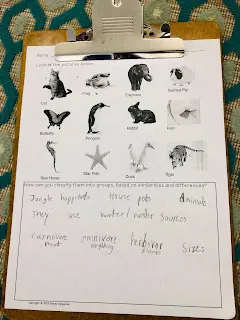 Name
Look at the pictures below.
Cat Frog Elephant Guinea Pig
Butterfly Penguin Rabbit Fish
Sea Horse Star Fish Duck Tiger
How can you classify them into groups, based on similarities and differences?
Jungle House pets Animals
They use water / water sources
Carnovore omnivore herbivor Sizes
meat anything plants